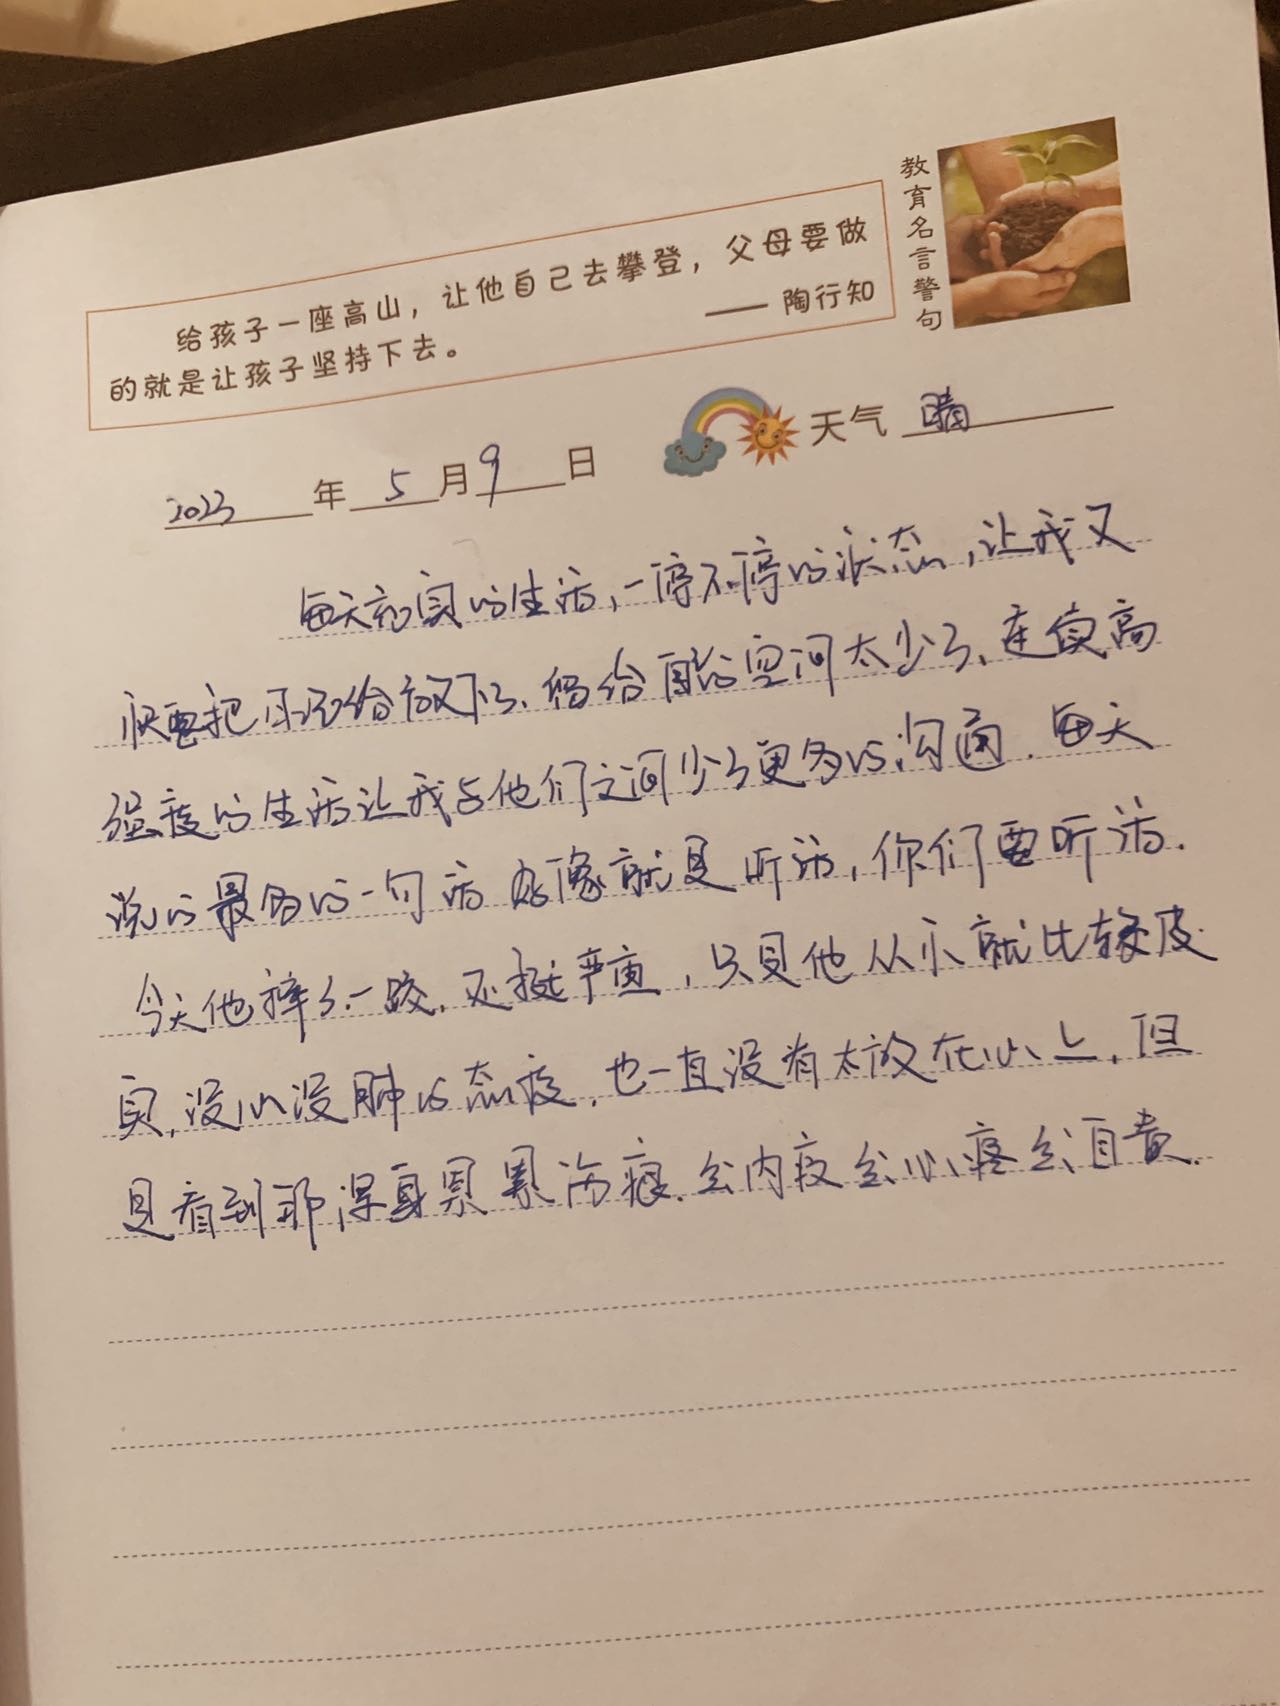 教育名言警句
给孩子一座高山，让他自己去攀登，父母要做
的就是让孩子坚持下去。
—— 陶行知
2023年5月9日 天气 晴
每天充实的生活，一停不停的状态，让我又
快要把日记给放下了、留给自己的空间太少了、连续高
强度的生活让我与他们之间少了更多的沟通．每天
说的最多的一句话好像就是听话，你们要听话．
今天他摔了一跤．还挺严重，只是他从小就比较皮
实，没心没肺的态度，也一直没有太放在心上，但
是看到那浑身累累伤痕．会内疚会心疼会自责．